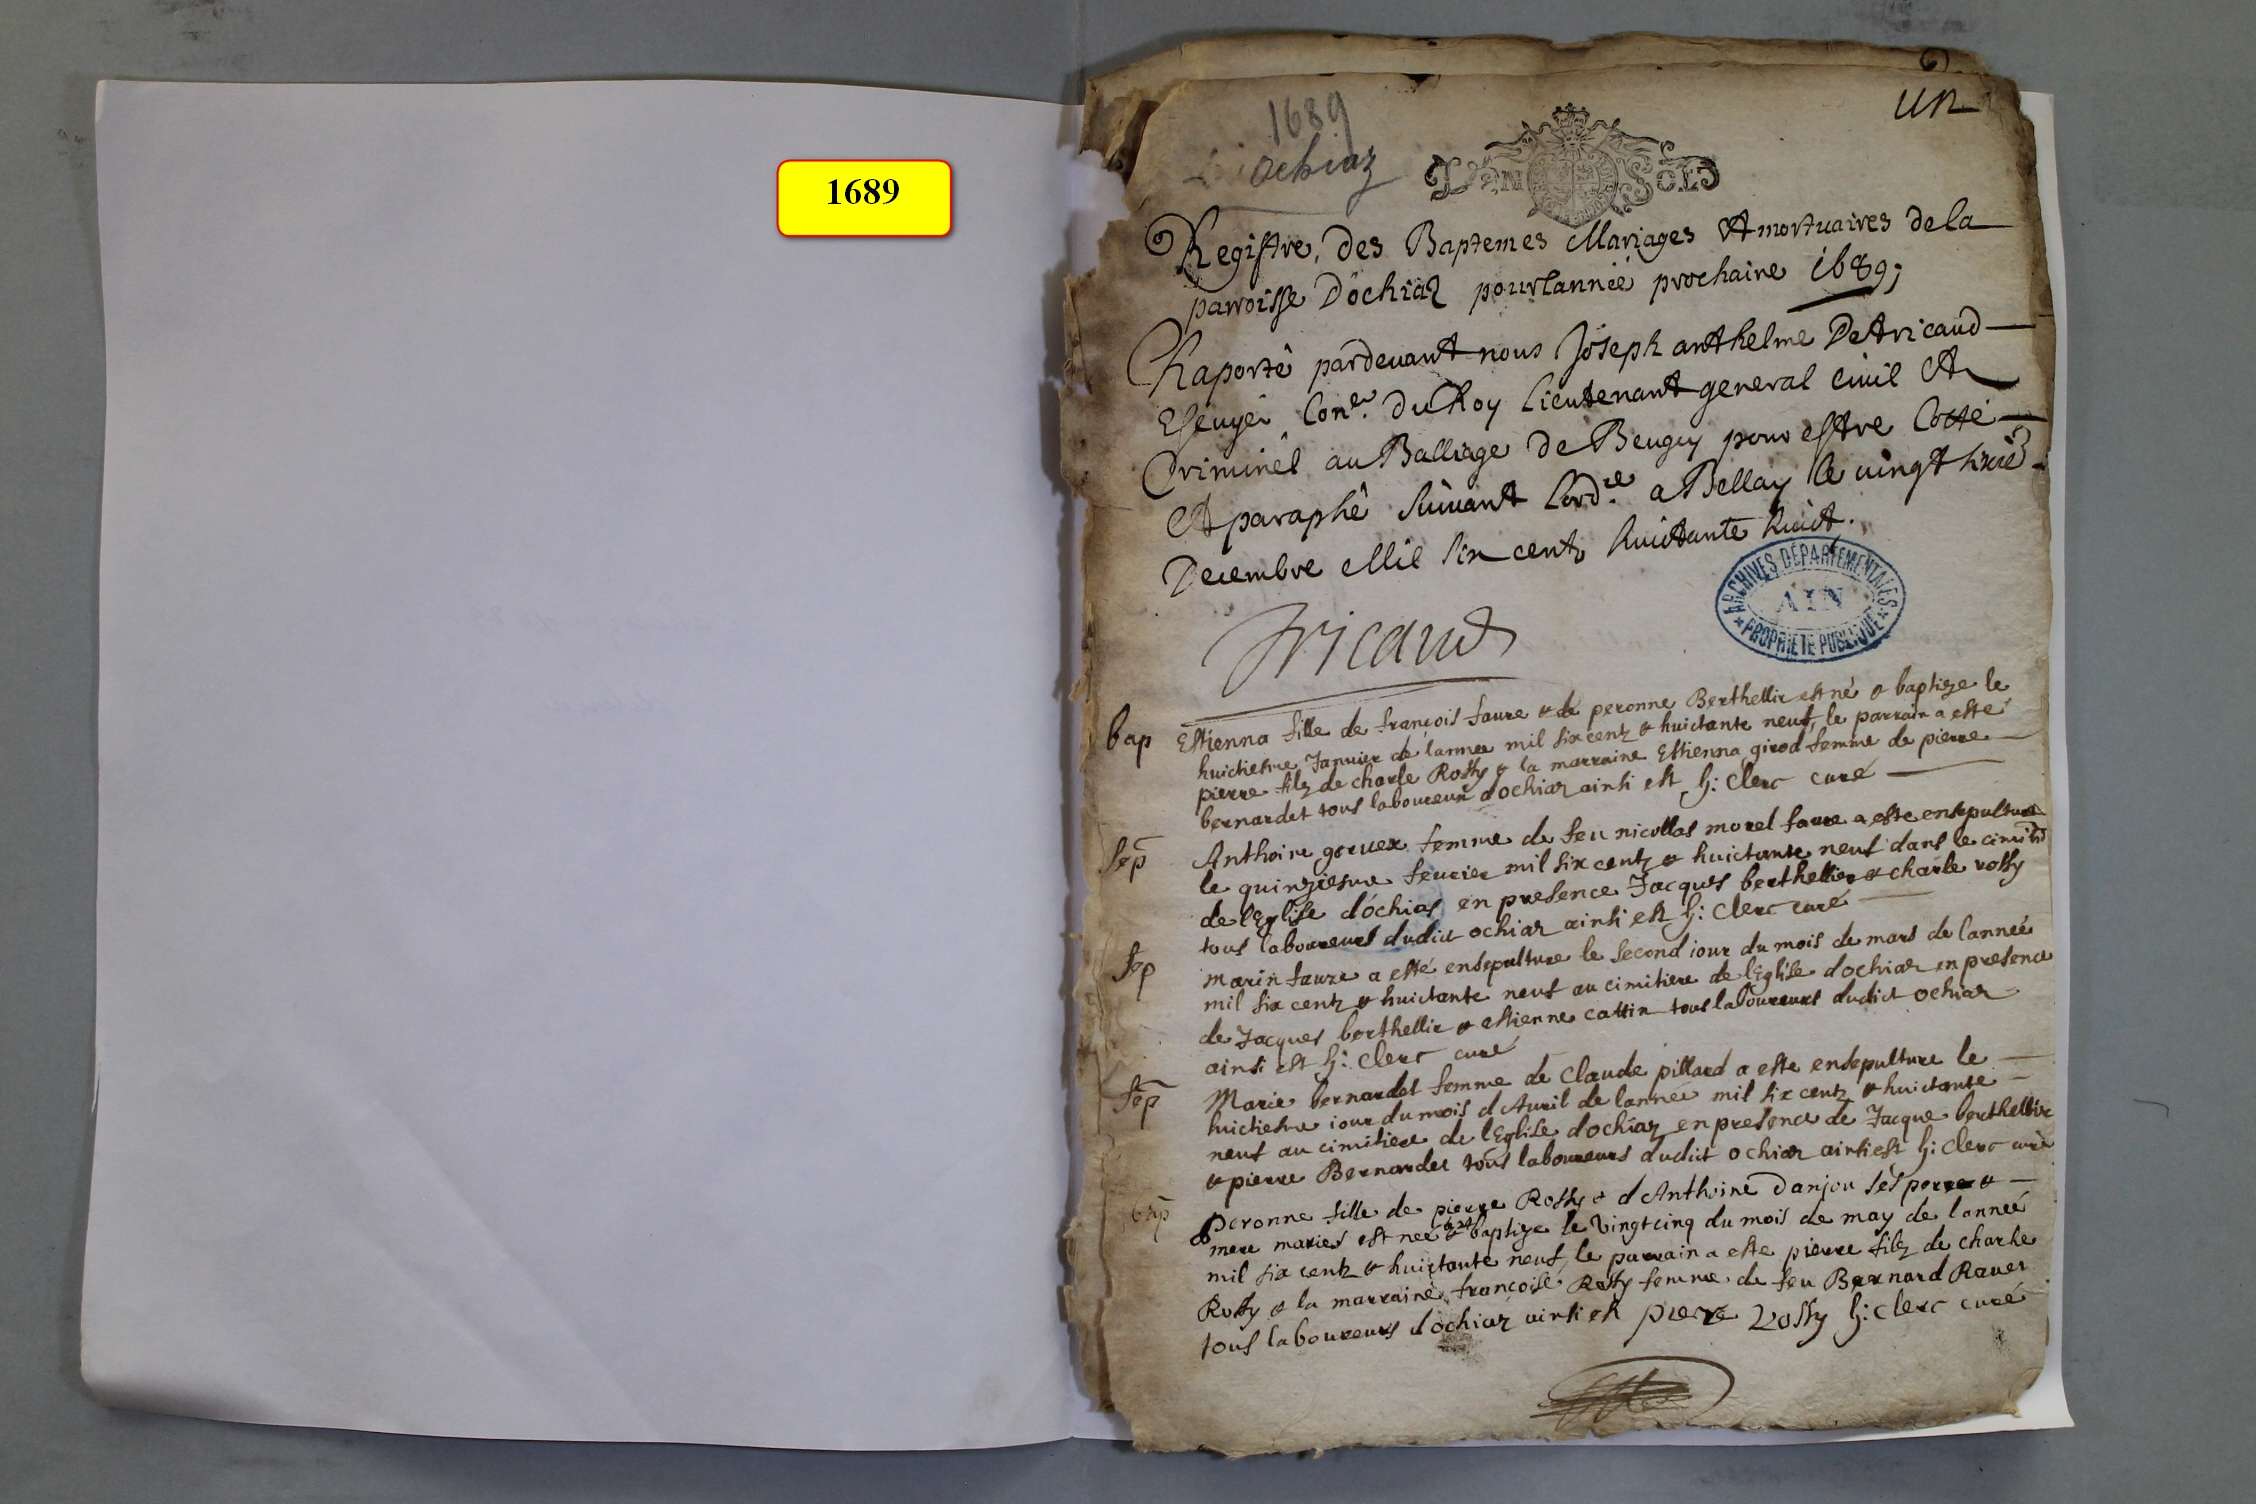 1689
un
1689
ochiaz
Registre, des Baptemes Mariages Et mortuaires de la
parroisse Dochiaz pour lannée prochaine 1689;
Raporté pardevant nous Joseph anthelme De tricaud
Escuyer Con.er du Roy Lieutenant general Civil Et
Criminel au Balliage de Beugey pour estre Cotté
Et paraphé suivant Lord.ce a Bellay le vingt
Decembre Mil six centz huictante huict.
ARCHIVES DÉPARTEMENTALES
AIN
PROPRIÉTÉ PUBLIQUE
Tricaud
bap Estienna fille de françois faure & de peronne Berthellie est né & baptize le
huictiesme Januier de lannee mil six centz & huictante neuf, le parrain a esté
pierre filz de charle Rossy & la marraine Estienna girod femme de pierre
bernardet tous laboureurs dochiaz ainsi est h: Clerc curé
sep Anthoine femme de feu nicollas morel faure a este ensepulture
le quinziesme feurier mil six centz & huictante neuf dans le
de lEglise dochiaz en presence Jacques berthellier & charle rossy
tous laboureurs dudict ochiaz ainsi est h: Clerc curé
sep marin faure a esté ensepulture le second iour du mois de mars de lannée
mil six centz & huictante neuf au cimitiere de lEglise dochiaz en presence
de Jacques berthellie & estienne cattin tous laboureurs dudict ochiaz
ainsi est h: Clerc curé
sep Marie bernardet femme de Claude pillard a este ensepulture le
huictiesme iour du mois dAuril de lannée mil six centz & huictante
neuf au cimitiere de lEglise dochiaz en presence de Jacque berthellie
& pierre Bernardet tous laboureurs dudict ochiaz ainsi est h: Clerc curé
bap peronne fille de pierre Rossy & dAnthoine Danjou ses perre &
mere maries est nee & baptize le vingtcinq du mois de may de lannée
mil six centz & huictante neuf, le parrain a este pierre filz de charle
Rossy & la marraine françoise Rossy femme de feu Bernard Rauet
tous laboureurs dochiaz ainsi est piere rossy h: clerc curé